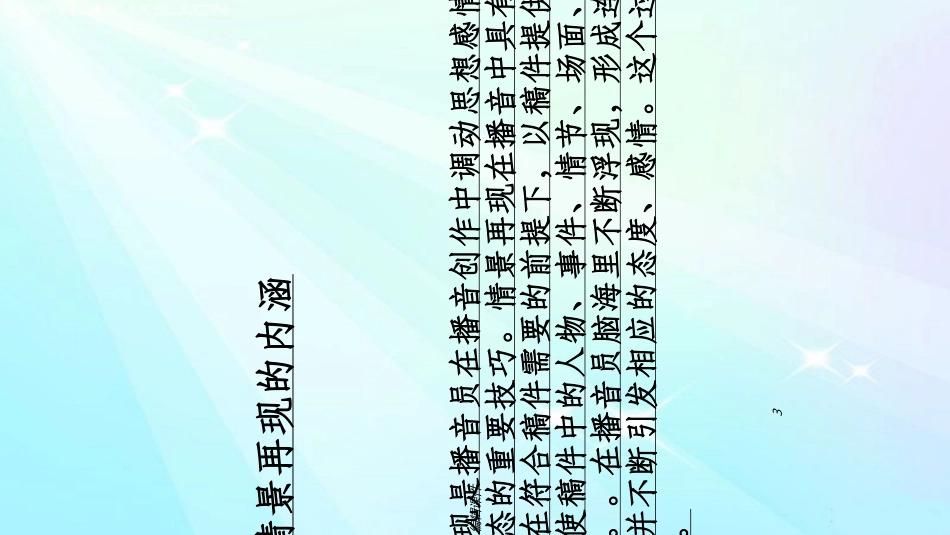 情景再现的内涵
现是播音员在播音创作中调动思想感情
态的重要技巧。情景再现在播音中具有
在符合稿件需要的前提下，以稿件提供
使稿件中的人物、事件、情节、场面、
。在播音员脑海里不断浮现，形成连
并不断引发相应的态度、感情。这个过
。
3